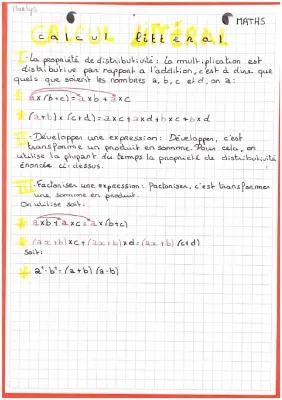 MATHS
calcul littéral
I-La propriété de distributivité: La multiplication est
distributive par rapport à l'addition, c'est à dire que
quels que soient les nombres a, b, c et d, on a:
a×(b+c)=a×b+a×c
(a+b)×(c+d)=a×c+a×d+b×c+b×d
II-Développer une expression: Développer, c'est
transformer un produit en somme. Pour cela, on
utilise la plupart du temps la propriété de distributivité
énoncée ci-dessus.
III-Factoriser une expression: Factoriser, c'est transformer
une somme en produit.
On utilise soit:
a×b+a×c=a×(b+c)
(a×+b)×c+(a×+b)×d=(a×+b)(c+d)
Soit:
a²-b²=(a+b)(a-b)